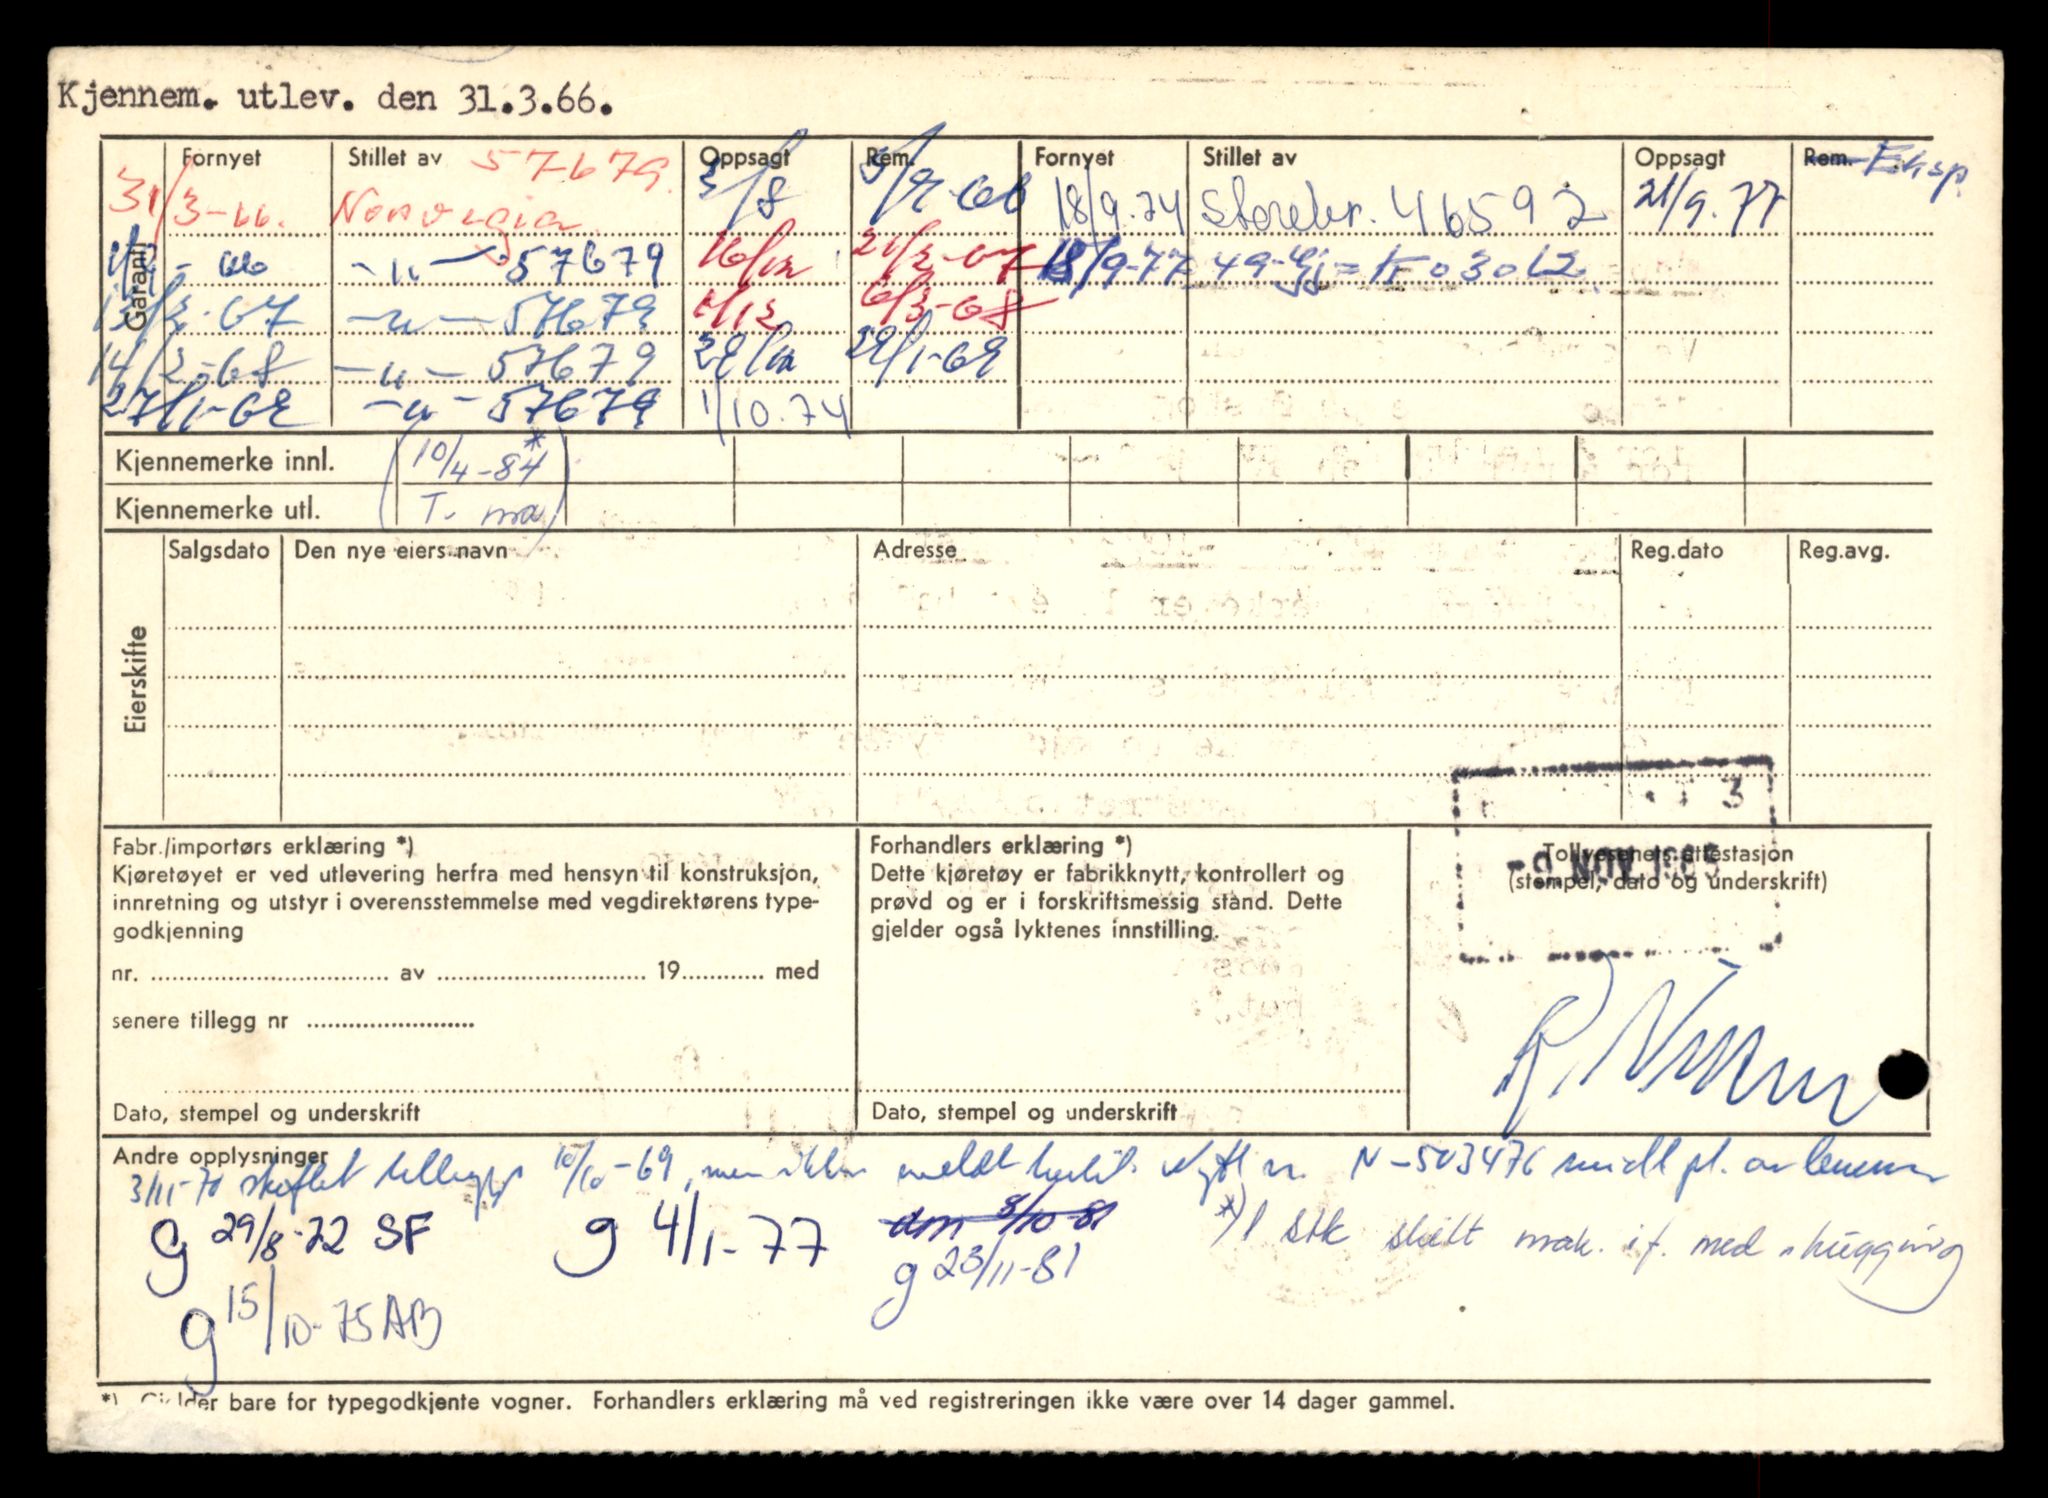 Kjennem. utlev. den 31.3.66.
Garanti
Fornyet Stillet av 57679 Oppsagt Rem. Fornyet Stillet av Oppsagt Rem. Eksp.
31/3-66. Norvegia 3/8 5/9-66 18/9.74 Storebr. 46592 21/9.77
-66 -"- 57679 16/12 21/2-67 18/9-77
13/2-67 -"- 57679 1/12 6/3-68
14/2-68 -"- 57679 28/12 29/1-69
27/1-69 -"- 57679 1/10.74
Kjennemerke innl. (10/4-84*
Kjennemerke utl. T. ma)
Eierskifte
Salgsdato Den nye eiers navn Adresse Reg.dato Reg.avg.
Fabr./importørs erklæring *)
Kjøretøyet er ved utlevering herfra med hensyn til konstruksjon,
innretning og utstyr i overensstemmelse med vegdirektørens type-
godkjenning
nr. av 19 med
senere tillegg nr
Dato, stempel og underskrift
Forhandlers erklæring *)
Dette kjøretøy er fabrikknytt, kontrollert og
prøvd og er i forskriftsmessig stand. Dette
gjelder også lyktenes innstilling.
Dato, stempel og underskrift
Tollvesenets attestasjon
(stempel, dato og underskrift)
3
-9 NOV 1965
Andre opplysninger
3/11-70 skiftet 10/10-69, men ikke meldt hertil. Nytt nr. N-503476 midl pl. av
g 29/8-72 SF g 4/1-77 dm 8/10-81 *) 1 stk skilt mak. i f. med hugging
g 23/11-81
g 15/10-75 AB
*) Gjelder bare for typegodkjente vogner. Forhandlers erklæring må ved registreringen ikke være over 14 dager gammel.